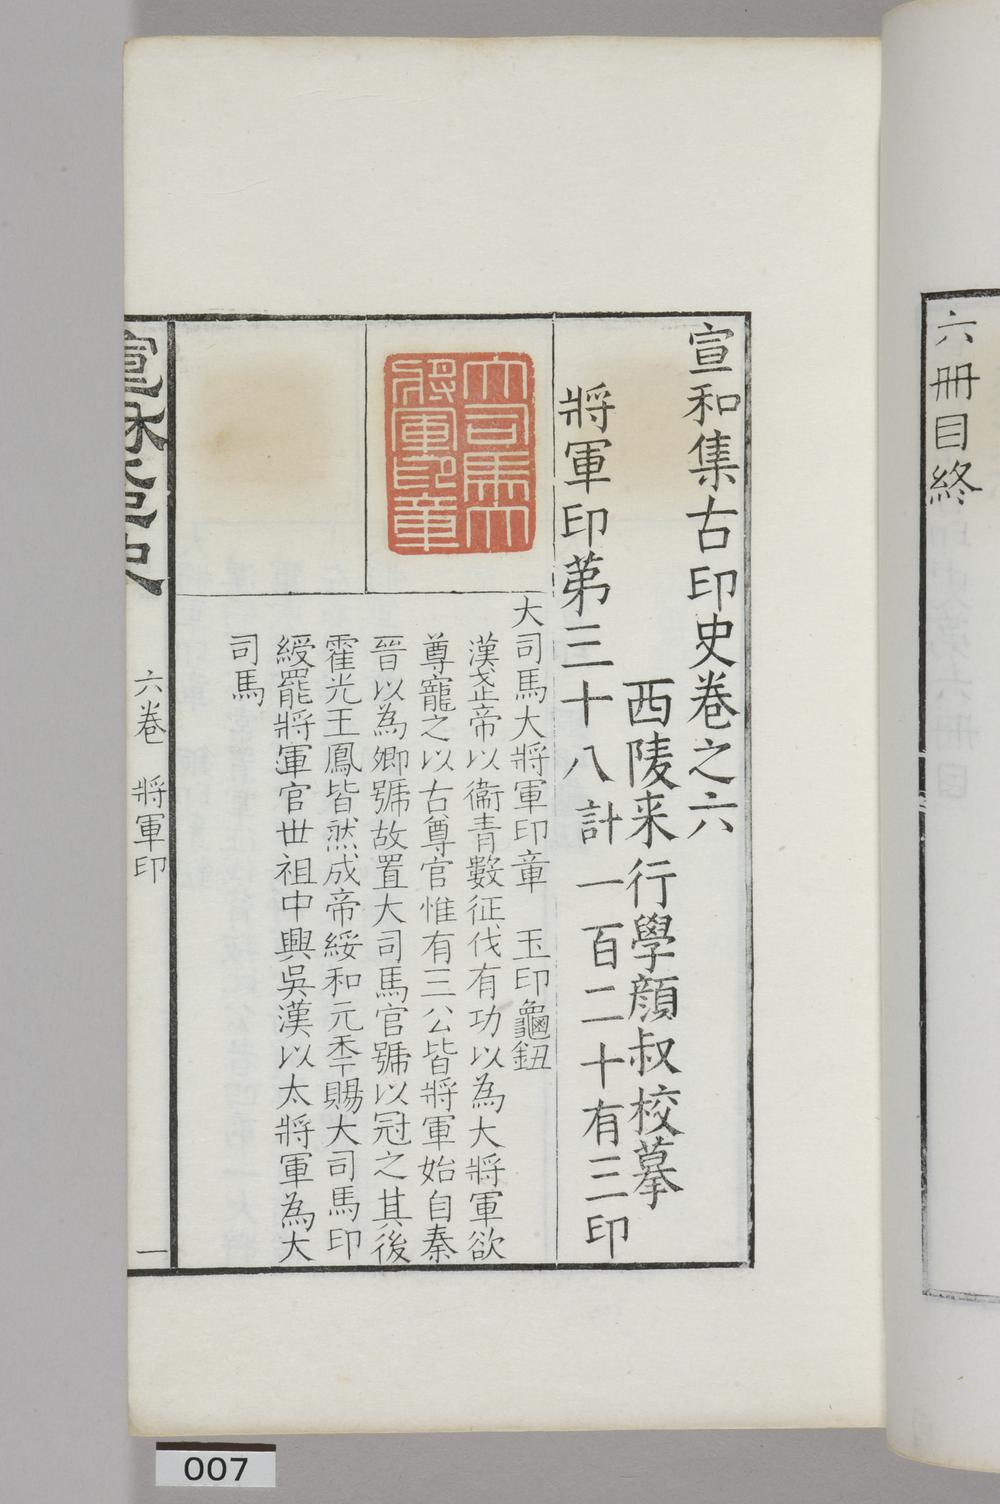 六冊目終
宣和集古印史卷之六
西陵来行學顔叔校摹
將軍印第三十八計一百二十有三印
大司馬大將軍印章
大司馬大將軍印章　玉印龜鈕
漢武帝以衞青數征伐有功以為大將軍欲
尊寵之以古尊官惟有三公皆將軍始自秦
晉以為卿號故置大司馬官號以冠之其後
霍光王鳳皆然成帝綏和元年賜大司馬印
綬罷將軍官世祖中興吳漢以大將軍為大
司馬
宣和印史
六卷　將軍印
一
007